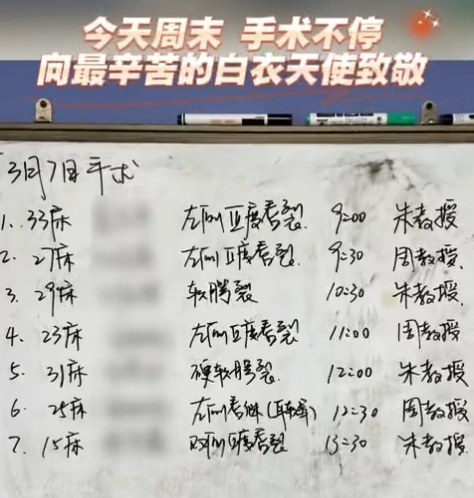 今天周末 手术不停
向最辛苦的白衣天使致敬
3月7日手术
1. 33床 左侧Ⅲ度唇裂 9:00 朱教授
2. 27床 左侧Ⅲ度唇裂 9:30 周教授
3. 29床 软腭裂 10:30 朱教授
4. 23床 左侧Ⅲ度唇裂 11:00 周教授
5. 31床 硬软腭裂 12:00 朱教授
6. 25床 左侧唇继 12:30 周教授
7. 15床 双侧Ⅲ度唇裂 13:30 朱教授